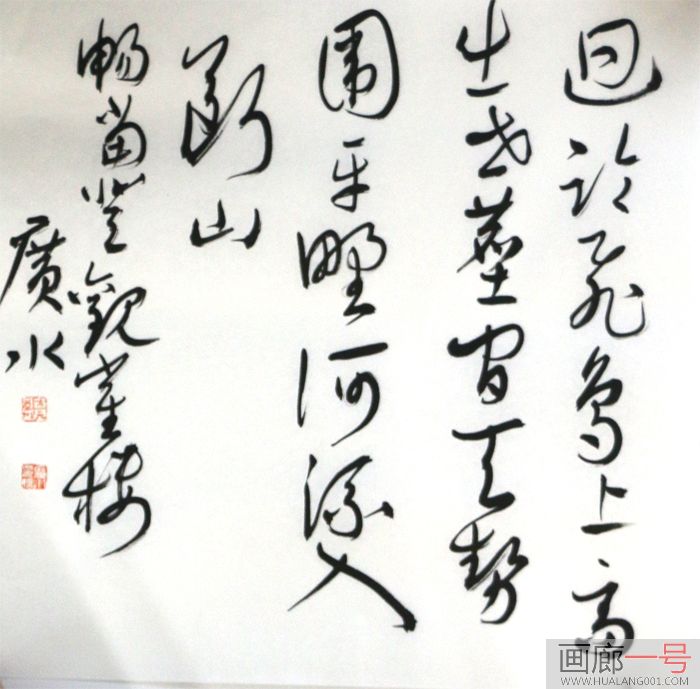 迥临飛鸟上高
出世塵间天势
围平野河流入
断山
畅當登觀雀楼
廣水
画廊一号
WWW.HUALANG001.COM